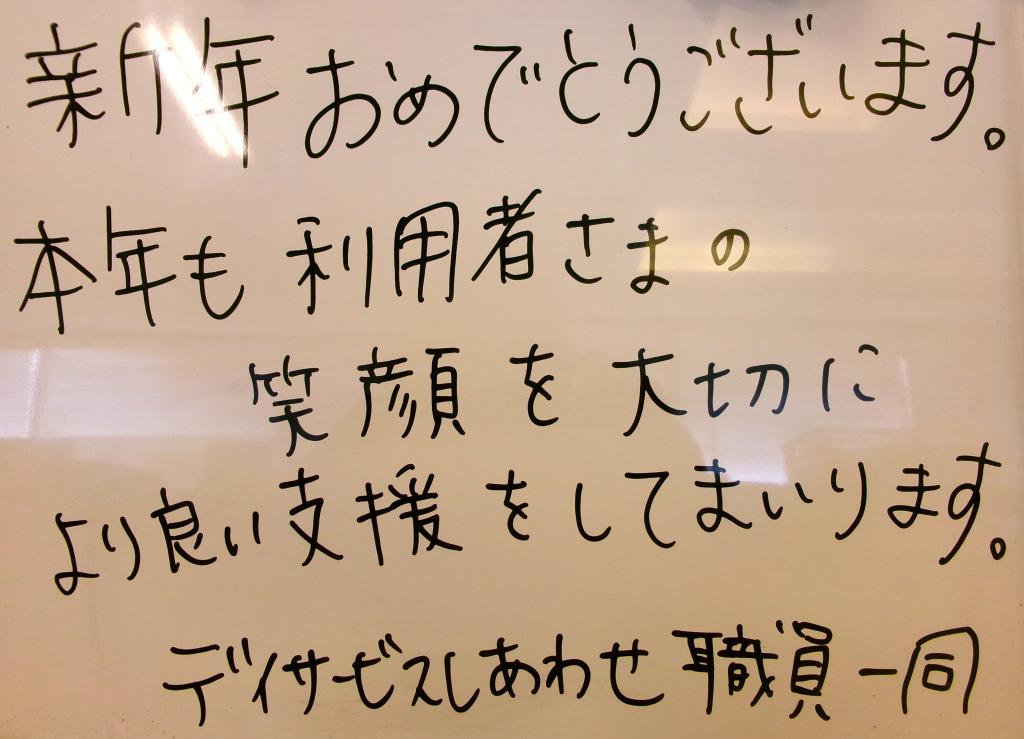 新年おめでとうございます。
本年も利用者さまの
笑顔を大切に
より良い支援をしてまいります。
デイサービスしあわせ職員一同